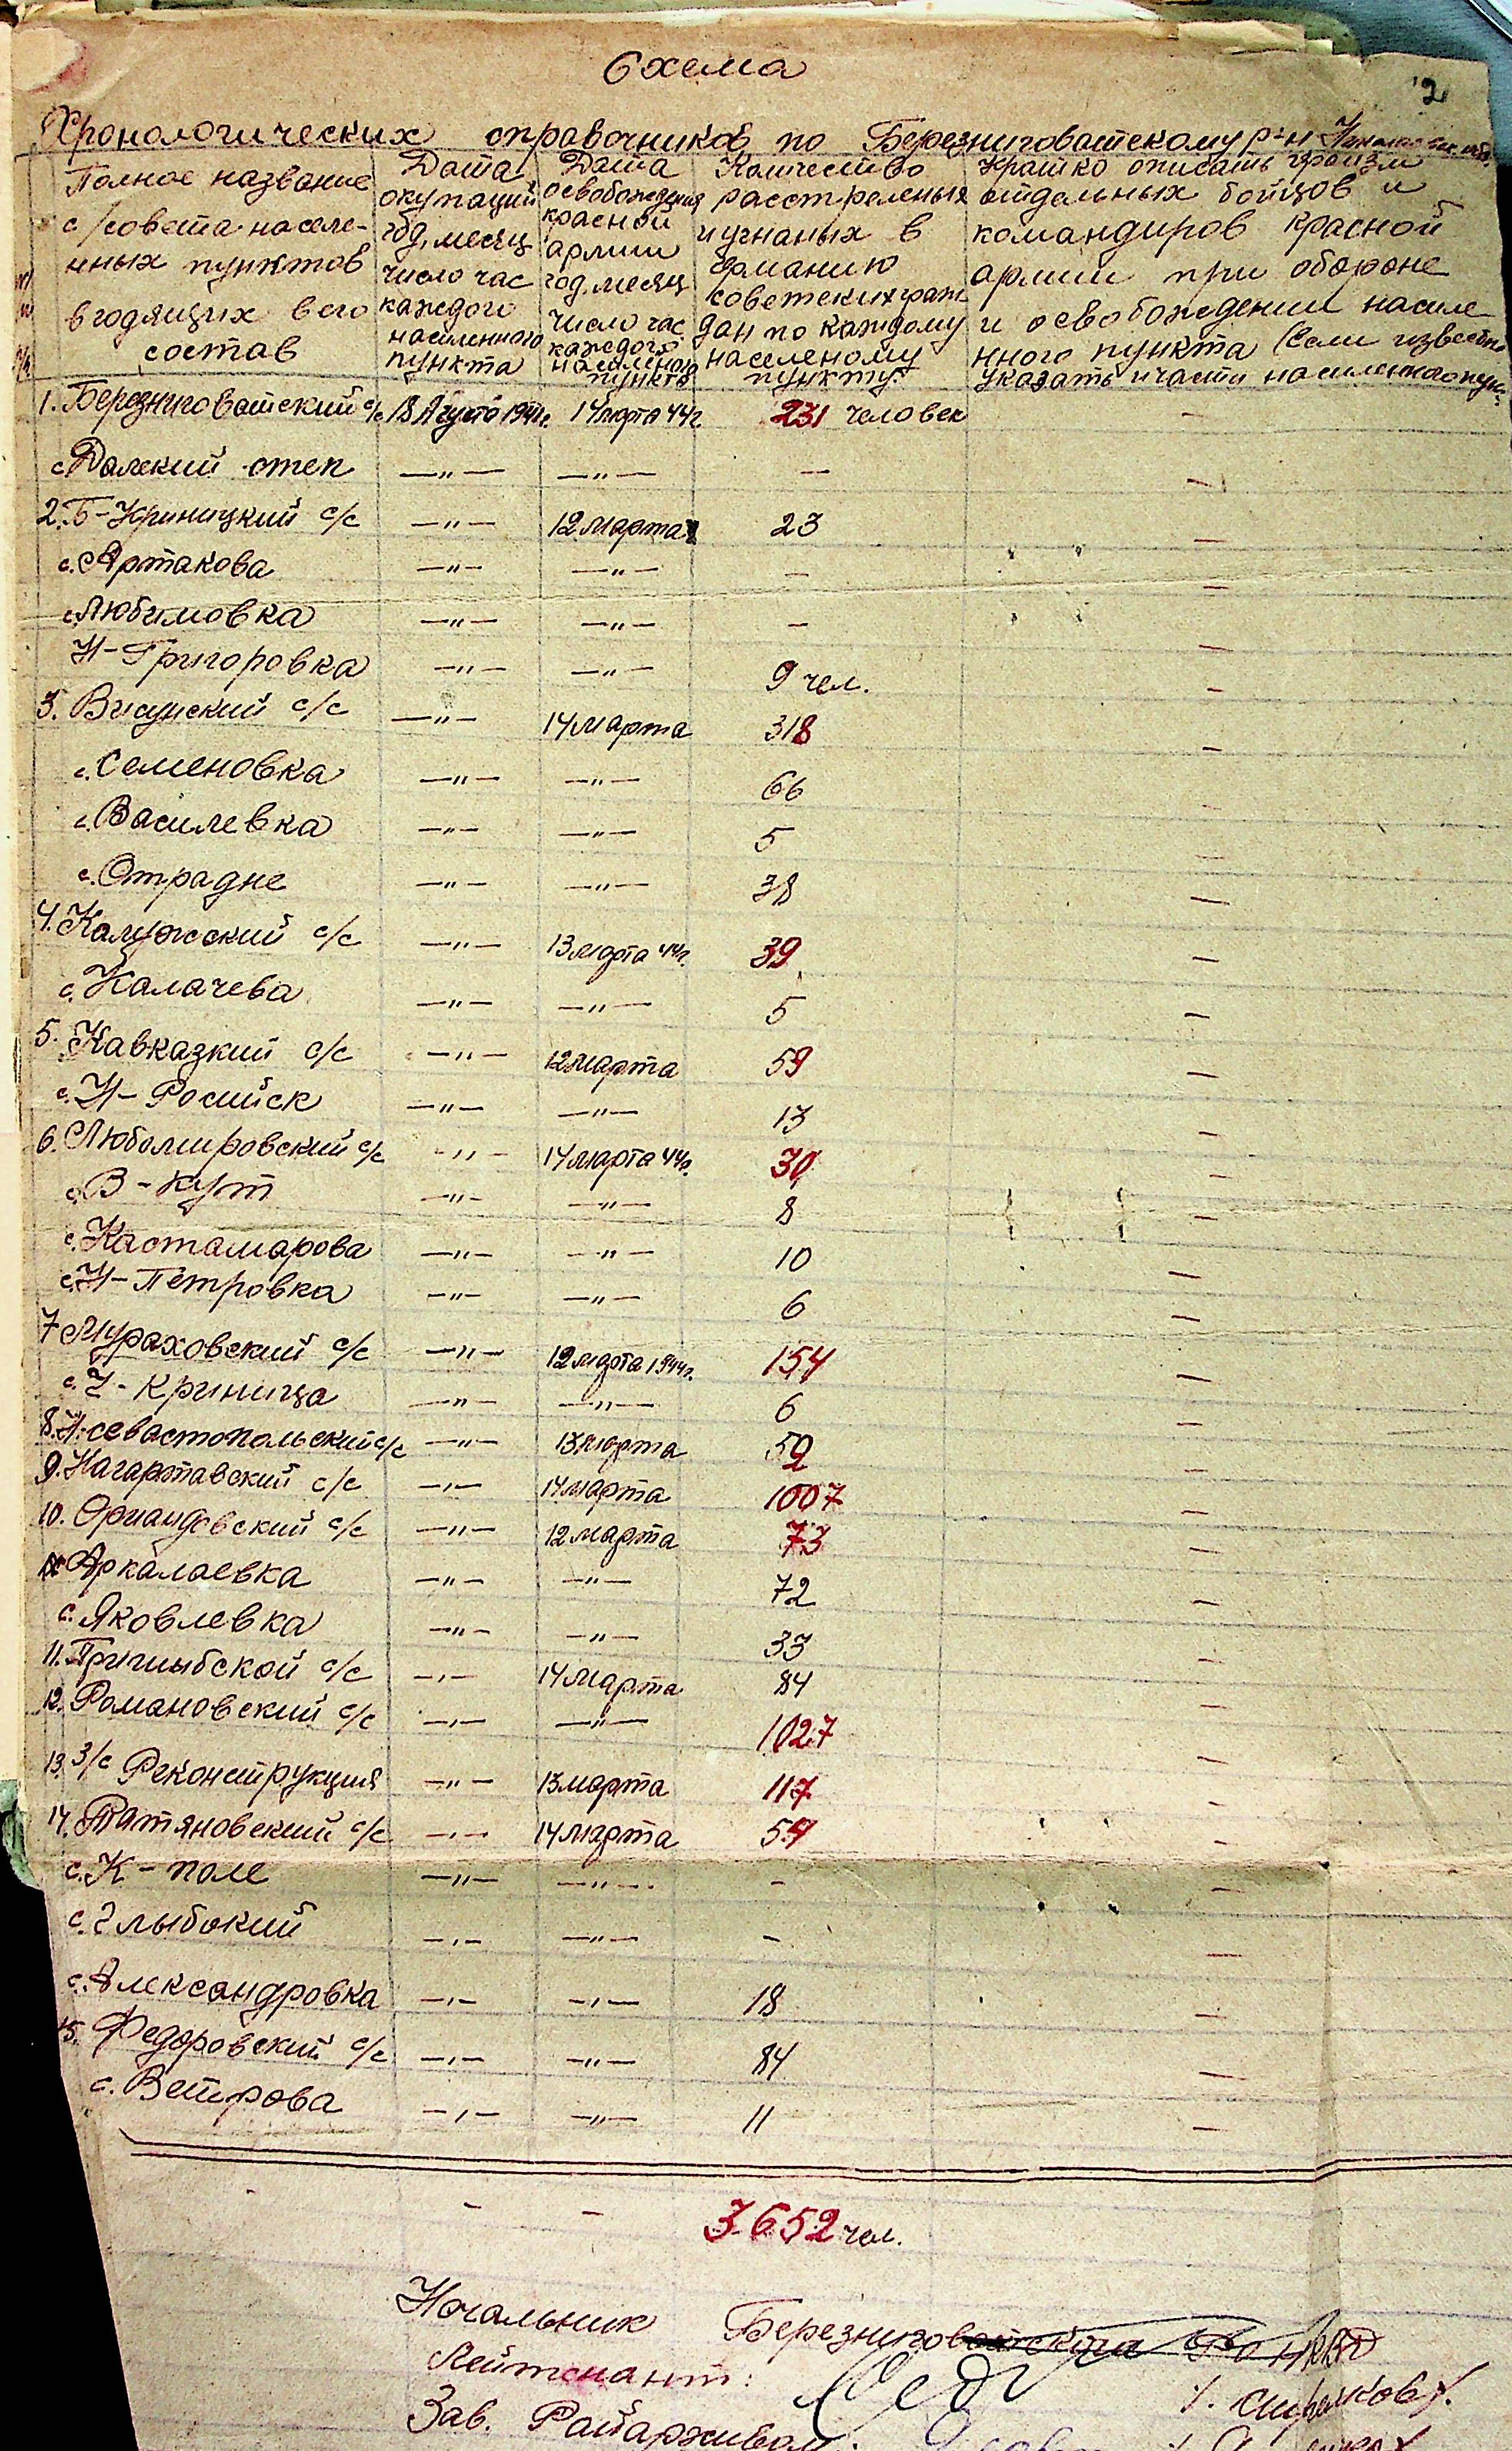 Схема
2
Хронологических справочников по Березниговатскому р-н
Полное название с/совета населенных пунктов входящих в его состав
Дата окупации год, месяц число час каждого населенного пункта
Дата освобождения красной армии год, месяц число час каждого населеного пункта
Количество расстреленых и угнаных в германию советских граждан по каждому населеному пункту.
Кратко описать героизм отдельных бойцов и командиров красной армии при обороне и освобождении населенного пункта (Если известно указать и части населенного
1. Березниговатский с/с 18 Августа 1941г. 14 марта 44г. 231 человек —
с. Далекий степ —"— —"— — —
2. Б-Криницкий с/с —"— 12 марта 23 —
с. Артакова —"— —"— — —
с. Любимовка —"— —"— — —
Н-Григоровка —"— —"— 9 чел. —
3. Висунский с/с —"— 14 марта 318 —
с. Семеновка —"— —"— 66
с. Василевка —"— —"— 5
с. Отрадне —"— —"— 38 —
4. Калужский с/с —"— 13 марта 44г. 39 —
с. Калачева —"— —"— 5 —
5. Кавказкий с/с —"— 12 марта 59 —
с. Н-Росийск —"— —"— 13 —
6. Любомировский с/с —"— 14 марта 44г. 30 —
с. В-Кут —"— —"— 8 —
с. Кастамарова —"— —"— 10 —
с. Н-Петровка —"— —"— 6 —
7. Мураховский с/с —"— 12 марта 1944г. 154 —
с. Г-Криница —"— —"— 6 —
8. Н-севастопольский с/с —"— 13 марта 59 —
9. Нагартавский с/с —"— 14 марта 1007 —
10. Орландовский с/с —"— 12 марта 73 —
Аркалаевка —"— —"— 72 —
с. Яковлевка —"— —"— 33 —
11. Пришыбской с/с —"— 14 марта 84 —
12. Романовский с/с —"— —"— 1027 —
13. З/с Реконструкция —"— 13 марта 117 —
14. Татяновский с/с —"— 14 марта 54 —
с. К-поле —"— —"— — —
с. Глыбокий —"— —"— — —
с. Александровка —"— —"— 18 —
15. Федоровский с/с —"— —"— 84 —
с. Ветрова —"— —"— 11 —
— — 3652 чел.
Начальник Березниговатского РО НКВД
Лейтенант:
Зав. Райархивом: